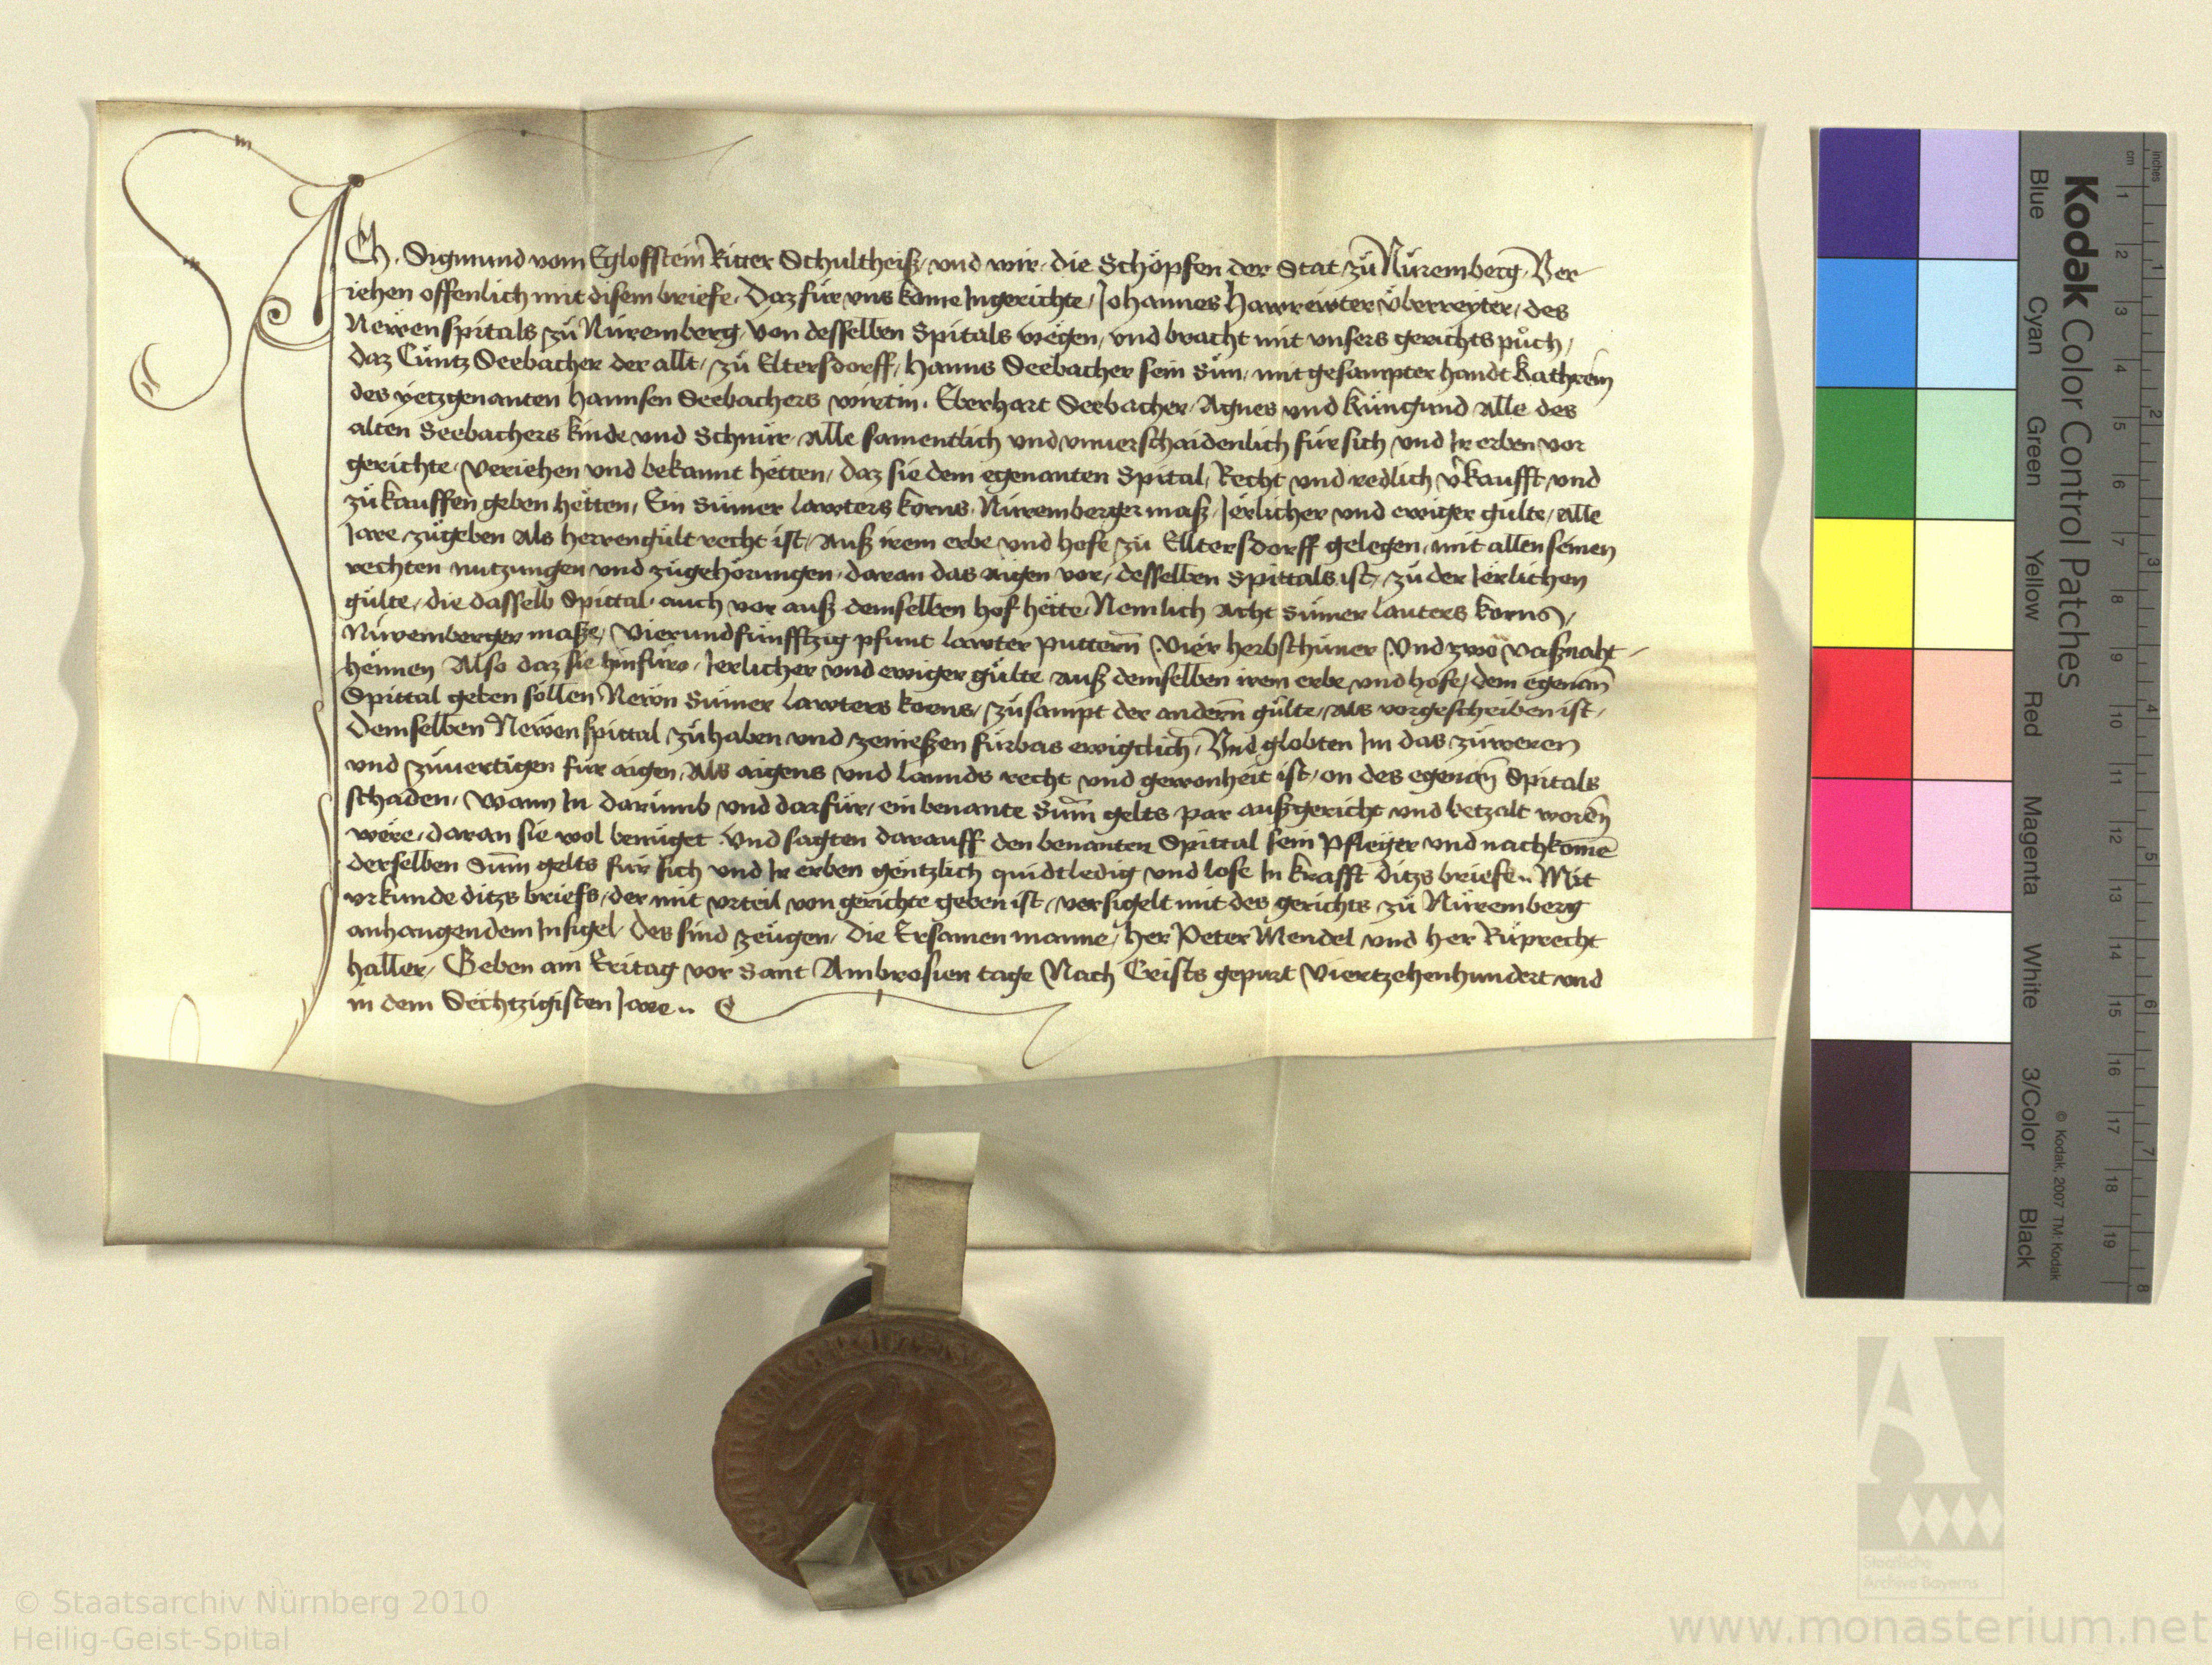 ICh. Sigmund vom Egloffstein Ritter Schultheiß, vnd wir, die Schöpfen der Stat, zü Nüremberg, Ver
iehen offenlich mit disem briefe, Daz für vns kome Ingerichte, Johannes Hawrewter überreyter, des
Newenspitals zü Nüremberg, von desselben Spitals wegen, vnd bracht mit vnsers gerichts půch,
daz Cüntz Seebacher der allt, zü Eltersdorff, Hanns Seebacher sein Sün, mit gesampter handt Kathrein
des yetzgenanten Hannsen Seebachers wirtin, Eberhart Seebacher, Agnes vnd Küngund alle des
alten Seebachers kinde vnd Schnür, alle samentlich vnd vnuerschaidenlich für sich vnd Ir erben vor
gerichte, veriehen vnd bekannt hetten, daz sie dem egenanten Spital, Recht vnd redlich v̾kaufft, vnd
zükauffen geben hetten, Ein Sümer lawters korns, Nüremberger maß, Jerlicher vnd ewiger gülte, alle
Jare, zügeben als herrengült recht ist, auß irem erbe vnd hofe zü Elltersdorff gelegen, mit allen seinen
rechten nutzungen vnd zügehörungen, daran das aigen vor, desselben Spittals ist, zü der Jerlichen
gülte, die dasselb Spittal, auch vor auß demselben hof hette, Nemlich acht Sümer lauters korns,
Nüremberger maße, Vierundfünfftzig pfunt lawter puttern̄ Vier herbsthüner Vnd zwo vasznaht
hennen Also daz sie hinfüro, Jerlicher vnd ewiger gülte auß demselben irem erbe vnd hofe, dem egenan̄
Spittal geben söllen Newn Sümer lawters korns, züsampt der andern̄ gülte, als vorgescheiben ist,
Demselben Newenspittal zühaben vnd zenießen fürbas ewigclich, Vnd globten Im das züweren
vnd züuertigen für aigen, Als aigens vnd lannds recht vnd gewonheit ist, on des egenan̄ Spitals
schaden, Wann In darümb vnd darfür, ein benante Sum̄ gelts, par außgericht vnd betzalt woren̄
were, daran sie wol benüget Vnd sagten darauff den benanten Spittal sein Pfleger vnd nachkomē
derselben Sum̄ gelts für sich vnd Ir erben gentzlich quidtledig vnd lose In krafft ditzs briefe, Mit
vrkunde ditzs briefs, der mit vrteil von gerichte geben ist, versigelt mit des gerichts zü Nüremberg
anhangendem Insigel, Des sind zeügen, die Ersamen manne, Her Peter Mendel vnd Her Rüprecht
Haller, Geben am Eritag vor Sant Ambrosien tage Nach Crists gepurt Viertzehenhundert vnd
in dem Sechtzigisten Jare.
Kodak Color Control Patches
© Kodak, 2007 TM: Kodak
Blue Cyan Green Yellow Red Magenta White 3/Color Black
inches 1 2 3 4 5 6 7 8
cm 1 2 3 4 5 6 7 8 9 10 11 12 13 14 15 16 17 18 19
A
Staatliche
Archive Bayerns
© Staatsarchiv Nürnberg 2010
Heilig-Geist-Spital
www.monasterium.net